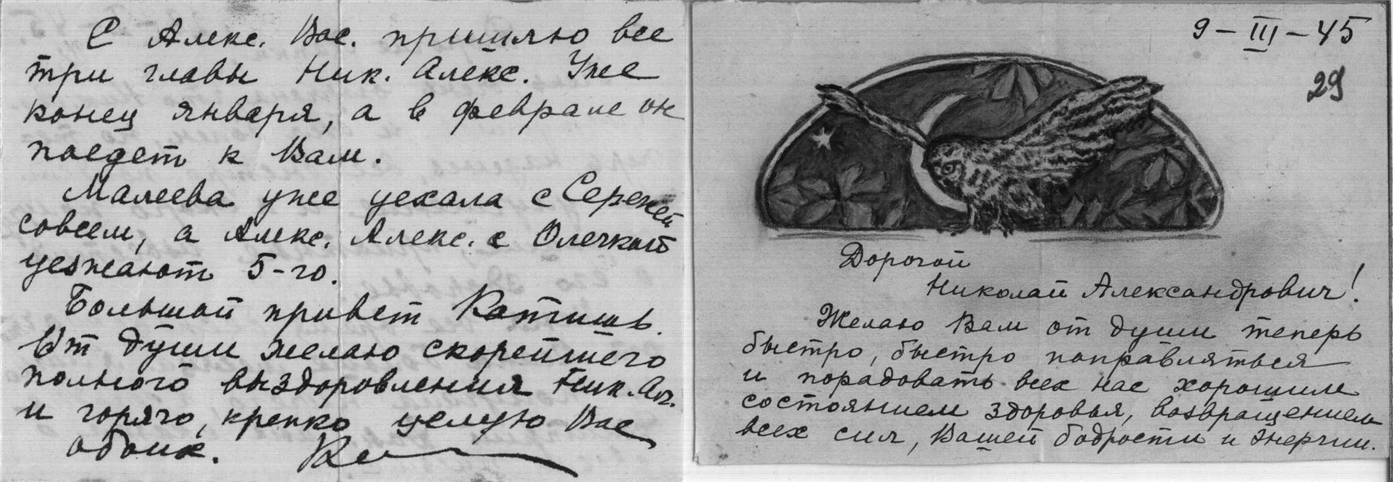 С Алекс. Вас. пришлю все
три главы Ник. Алекс. Уже
конец января, а в феврале он
поедет к Вам.
Малеева уже уехала с Сережей
совсем, а Алекс. Алекс. с Олечкой
уезжают 5-го.
Большой привет Катишь.
От души желаю скорейшего
полного выздоровления Ник. Ал.
и горячо, крепко целую Вас
обоих.
9-III-45
29
Дорогой
Николай Александрович!
Желаю Вам от души теперь
быстро, быстро поправляться
и порадовать всех нас хорошим
состоянием здоровья, возвращением
всех сил, Вашей бодрости и энергии.